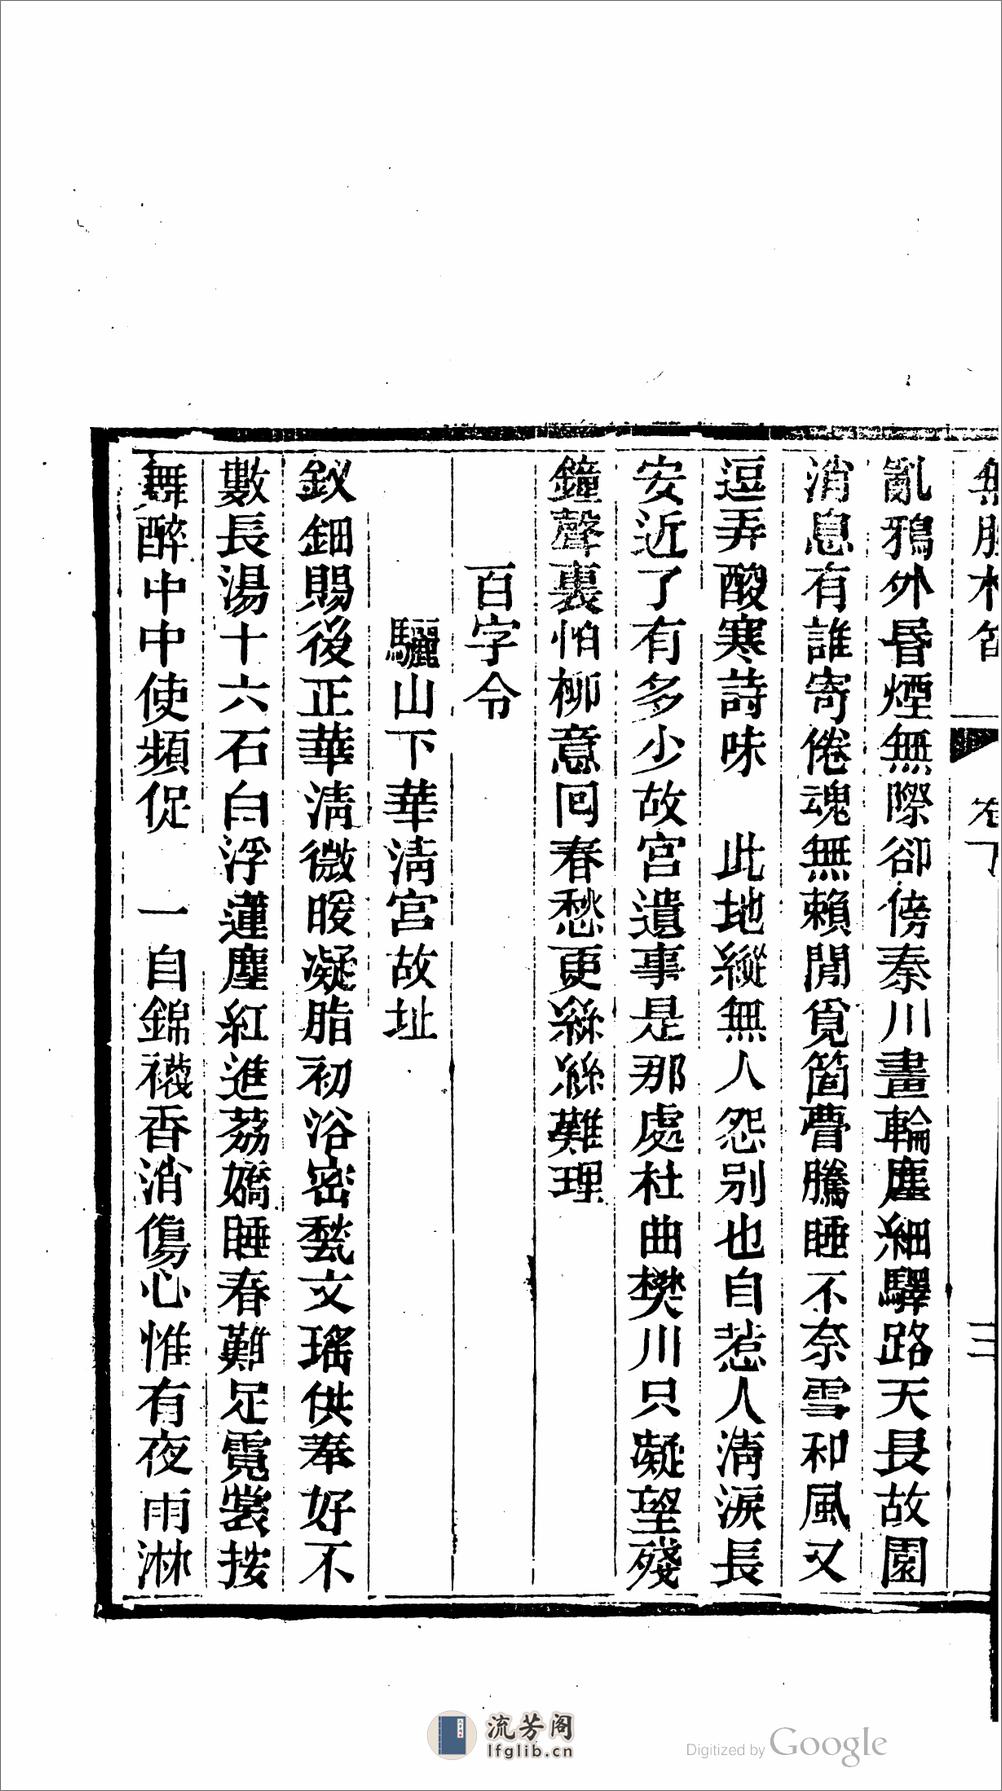 亂鴉外昬煙無際卻傍秦川畫輪塵細驛路天長故園
消息有誰寄倦魂無賴閒覓箇瞢騰睡不奈雪和風又
逗弄酸寒詩味　此地縱無人怨别也自惹人淸淚長
安近了有多少故宮遺事是那處杜曲樊川只凝望殘
鐘聲裏怕柳意回春愁更絲絲難理
百字令
驪山下華淸宮故址
釵鈿賜後正華淸微暖凝脂初浴密甃文瑤供奉好不
數長湯十六石白浮蓮塵紅進荔嬌睡春難足霓裳按
舞醉中中使頻促　一自錦襪香消傷心惟有夜雨淋
卷下
三
流芳阁
lfglib.cn
Digitized by Google